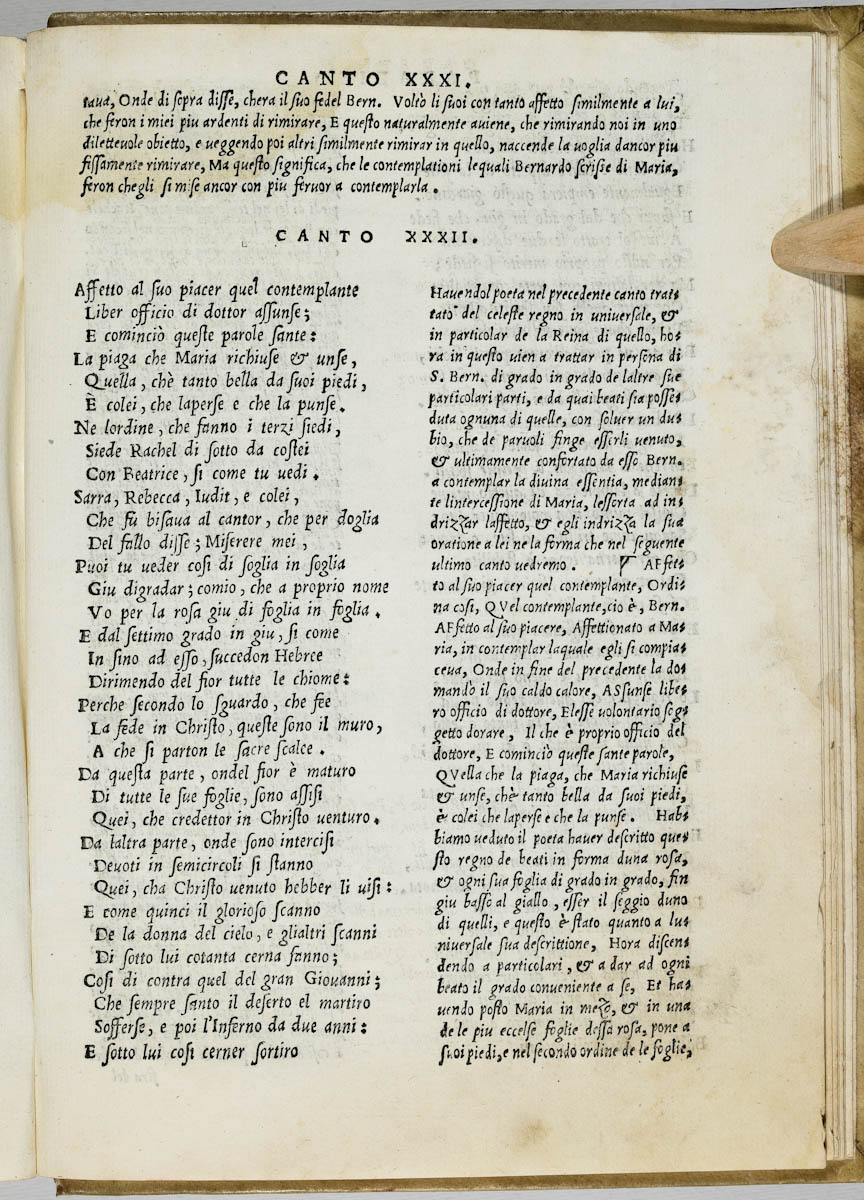 CANTO XXXI.
taua, Onde di sopra disse, chera il suo fedel Bern. Voltò li suoi con tanto affetto similmente a lui,
che feron i miei piu ardenti di rimirare, E questo naturalmente auiene, che rimirando noi in uno
diletteuole obietto, e ueggendo poi altri similmente rimirar in quello, naccende la uoglia dancor piu
fissamente rimirare, Ma questo significa, che le contemplationi lequali Bernardo scrisse di Maria,
feron chegli si mise ancor con piu feruor a contemplarla.
CANTO XXXII.
Affetto al suo piacer quel contemplante
Liber officio di dottor assunse;
E cominciò queste parole sante:
La piaga che Maria richiuse & unse,
Quella, chè tanto bella da suoi piedi,
È colei, che laperse e che la punse.
Ne lordine, che fanno i terzi siedi,
Siede Rachel di sotto da costei
Con Beatrice, si come tu uedi.
Sarra, Rebecca, Iudit, e colei,
Che fù bisaua al cantor, che per doglia
Del fallo disse; Miserere mei,
Puoi tu ueder cosi di soglia in soglia
Giu digradar; comio, che a proprio nome
Vo per la rosa giu di foglia in foglia.
E dal settimo grado in giu, si come
In sino ad esso, succedon Hebree
Dirimendo del fior tutte le chiome:
Perche secondo lo sguardo, che fee
La fede in Christo, queste sono il muro,
A che si parton le sacre scalee.
Da questa parte, ondel fior è maturo
Di tutte le sue foglie, sono assisi
Quei, che credettor in Christo uenturo.
Da laltra parte, onde sono intercisi
Deuoti in semicircoli si stanno
Quei, cha Christo uenuto hebber li uisi:
E come quinci il glorioso scanno
De la donna del cielo, e glialtri scanni
Di sotto lui cotanta cerna fanno;
Cosi di contra quel del gran Giouanni;
Che sempre santo il deserto el martiro
Sofferse, e poi l'Inferno da due anni:
E sotto lui cosi cerner sortiro
Hauendol poeta nel precedente canto trat-
tato del celeste regno in uniuersale, &
in particolar de la Reina di quello, ho-
ra in questo uien a trattar in persona di
S. Bern. di grado in grado de laltre sue
particolari parti, e da quai beati sia posse-
duta ognuna di quelle, con soluer un du-
bio, che de paruoli finge esserli uenuto,
& ultimamente confortato da esso Bern.
a contemplar la diuina essentia, median-
te lintercessione di Maria, lesserta ad in-
drizzar laffetto, & egli indrizza la sua
oratione a lei ne la forma che nel seguente
ultimo canto uedremo. AFfet-
to al suo piacer quel contemplante, Ordi-
na cosi, QVel contemplante, cio è, Bern.
AFfetto al suo piacere, Affettionato a Ma-
ria, in contemplar laquale egli si compia-
ceua, Onde in fine del precedente la do-
mandò il suo caldo calore, ASsunse libe-
ro officio di dottore, Elesse uolontario sog-
getto dorare, Il che è proprio officio del
dottore, E cominciò queste sante parole,
QVella che la piaga, che Maria richiuse
& unse, chè tanto bella da suoi piedi,
è colei che laperse e che la punse. Hab-
biamo ueduto il poeta hauer descritto que-
sto regno de beati in forma duna rosa,
& ogni sua foglia di grado in grado, fin
giu basso al giallo, esser il seggio duno
di quelli, e questo è stato quanto a lu-
niuersale sua descrittione, Hora discen-
dendo a particolari, & a dar ad ogni
beato il grado conueniente a se, Et ha-
uendo posto Maria in mezo, & in una
de le piu eccelse foglie dessa rosa, pone a
suoi piedi, e nel secondo ordine de le foglie,